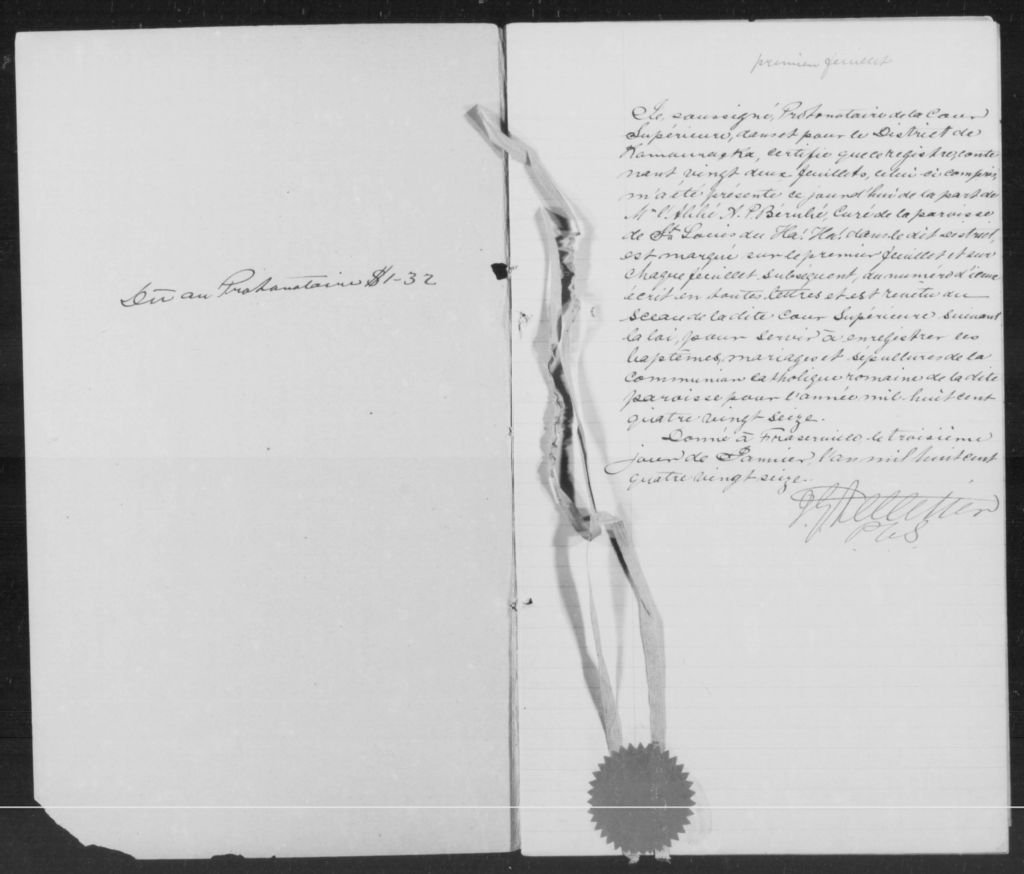 Dû au Protonotaire $1-32
premier feuillet
Je, soussigné, Protonotaire de la Cour
Supérieure, dans et pour le District de
Kamouraska, certifie que ce registre, conte
nant vingt deux feuillets, celui-ci compris,
m'a été présenté ce jourd'hui de la part de
Mr l'Abbé N. P. Bérubé, Curé de la paroisse
de St Louis du Ha! Ha! dans le dit district,
est marqué sur le premier feuillet et sur
chaque feuillet subséquent, du numéro d'iceux
écrit en toutes lettres et est revêtu du
sceau de la dite Cour Supérieure suivant
la loi, pour servir à enregistrer les
baptêmes, mariages et sépultures de la
Communion catholique romaine de la dite
paroisse pour l'année mil-huit cent
quatre vingt seize.
Donné à Fraserville le troisième
jour de Janvier, l'an mil huit cent
quatre vingt seize.
Pelletier
P.C.S.